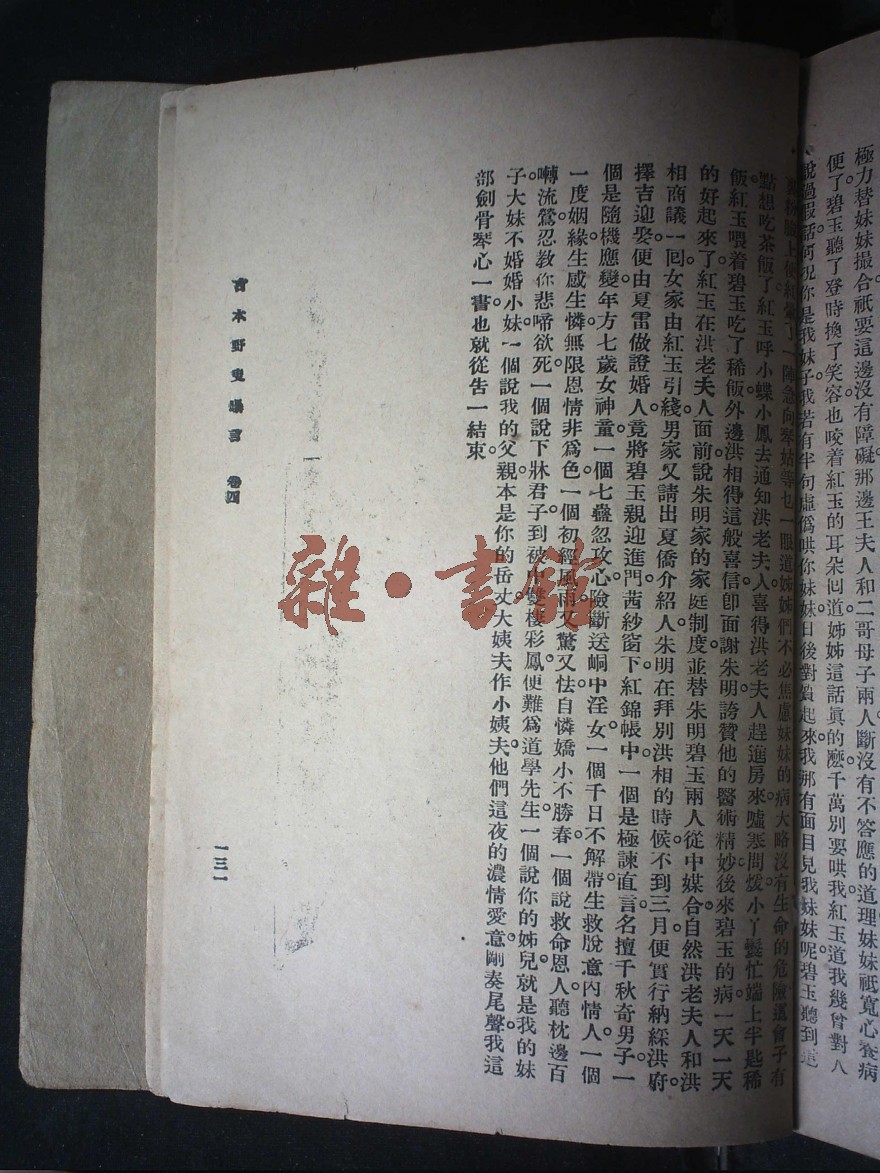 極力替妹妹撮合祇要這邊沒有障礙那邊王夫人和二哥母子兩人斷沒有不答應的道理妹妹祇寬心養病
便了碧玉聽了登時換了笑容也咬着紅玉的耳朵問道姊姊這話眞的麽千萬別要哄我紅玉道我幾曾對人
說過假話何况你是我妹子我若有半句虛僞哄你妹妹日後對質起來我那有面目見我妹妹呢碧玉聽到這
臉上便紅暈了一陣急向琴姑等乜一眼道姊姊們不必焦慮妹妹的病大略沒有生命的危險這會子有
點想吃茶飯了紅玉呼小蝶小鳳去通知洪老夫人喜得洪老夫人趕進房來噓寒問煖小丫鬟忙端上半匙稀
飯紅玉喂着碧玉吃了稀飯外邊洪相得這般喜信卽面謝朱明誇贊他的醫術精妙後來碧玉的病一天一天
的好起來了紅玉在洪老夫人面前說朱明家的家庭制度並替朱明碧玉兩人從中媒合自然洪老夫人和洪
相商議一囘女家由紅玉引綫男家又請出夏僑介紹人朱明在拜別洪相的時候不到三月便實行納綵洪府
擇吉迎娶便由夏雷做證婚人竟將碧玉親迎進門茜紗窗下紅錦帳中一個是極諫直言名擅千秋奇男子一
個是隨機應變年方七歲女神童一個七蠱忽攻心險斷送峒中淫女一個千日不解帶生救脫意內情人一個
一度姻緣生感生憐無限恩情非爲色一個初經風雨又驚又怯自憐嬌小不勝春一個說救命恩人聽枕邊百
囀流鶯忍敎你悲啼欲死一個說下牀君子到被中雙棲彩鳳便難爲道學先生一個說你的姊兒就是我的妹
子大妹不婚婚小妹一個說我的父親本是你的岳丈大姨夫作小姨夫他們這夜的濃情愛意剛奏尾聲我這
部劍骨琴心一書也就從吿一結束
古本野叟曝言 卷四
一三一
雜·書館